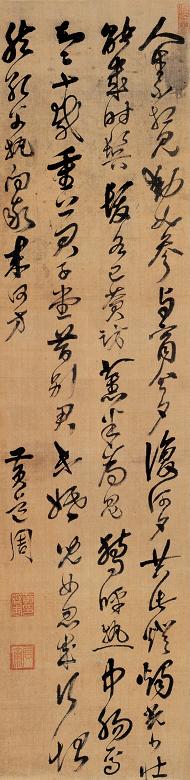 人生不相見動如參與商今夕復何夕共此燈燭光少壯
能幾時鬢髮各已蒼訪舊半為鬼驚呼熱中腸焉
知二十載重上君子堂昔別君未婚兒女忽成行怡
然敬父執問我來何方
黃道周